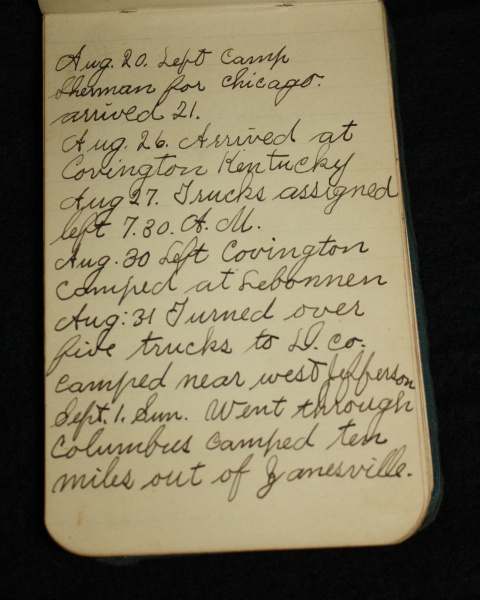 Aug. 20. Left Camp
Sherman for Chicago.
arrived 21.
Aug. 26. Arrived at
Covington Kentucky
Aug 27. Trucks assigned
left 7.30. A.M.
Aug. 30 Left Covington
camped at Lebonnen
Aug. 31 Turned over
five trucks to D. co.
camped near west Jefferson
Sept. 1. Sun. Went through
Columbus camped ten
miles out of Zanesville.